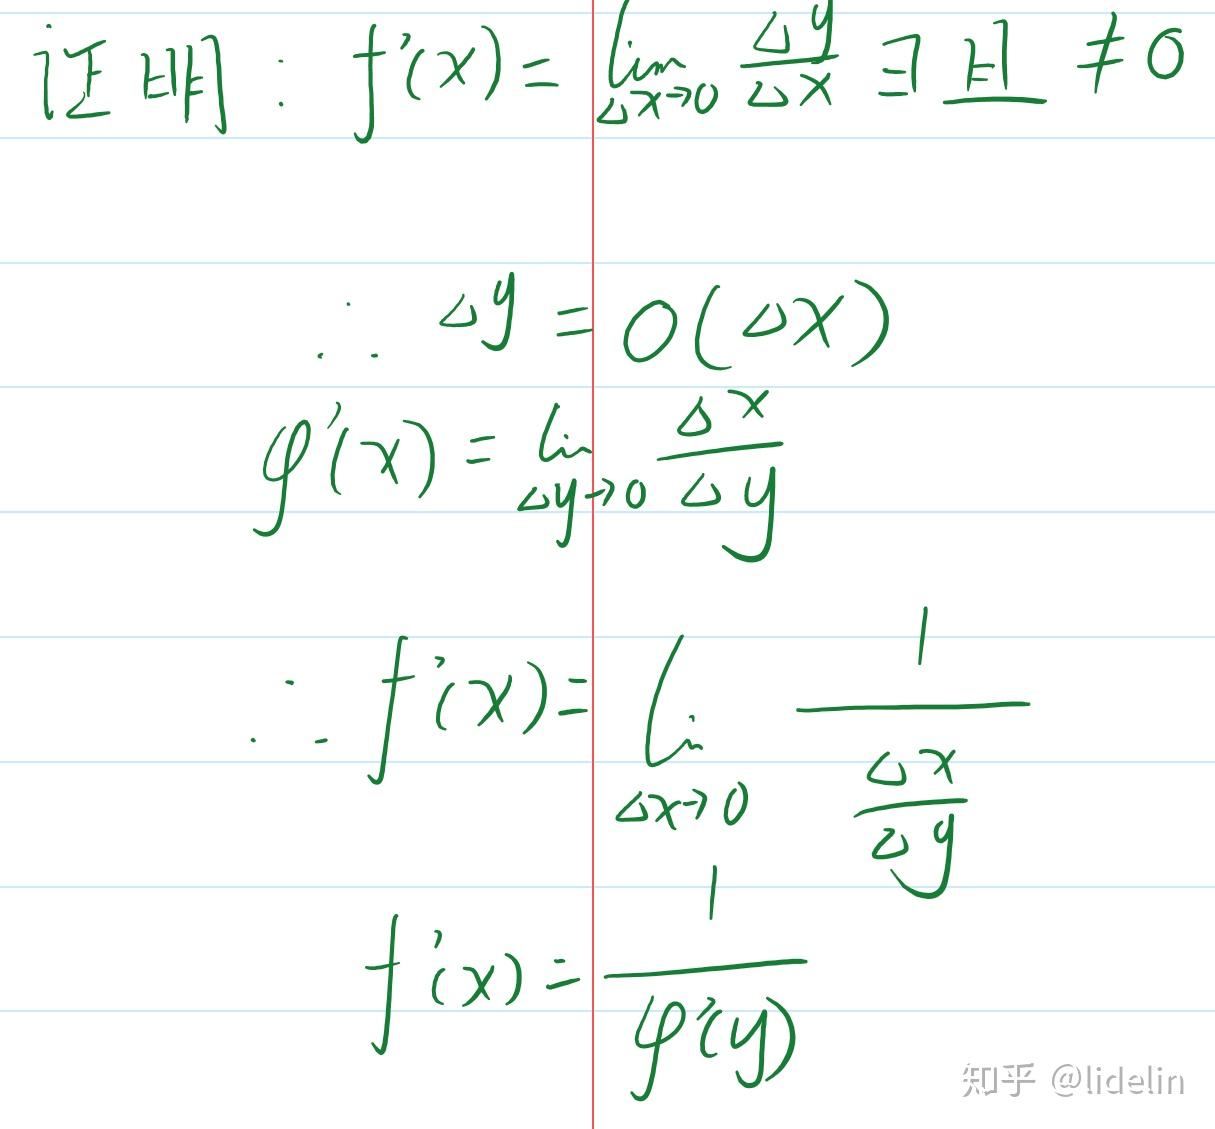 证明: f'(x) = lim Δx→0 Δy/Δx ∃ 且 ≠ 0
∴ Δy = O(Δx)
φ'(x) = lim Δy→0 Δx/Δy
∴ f'(x) = lim Δx→0 1/(Δx/Δy)
f'(x) = 1/φ'(y)
知乎 @lidelin